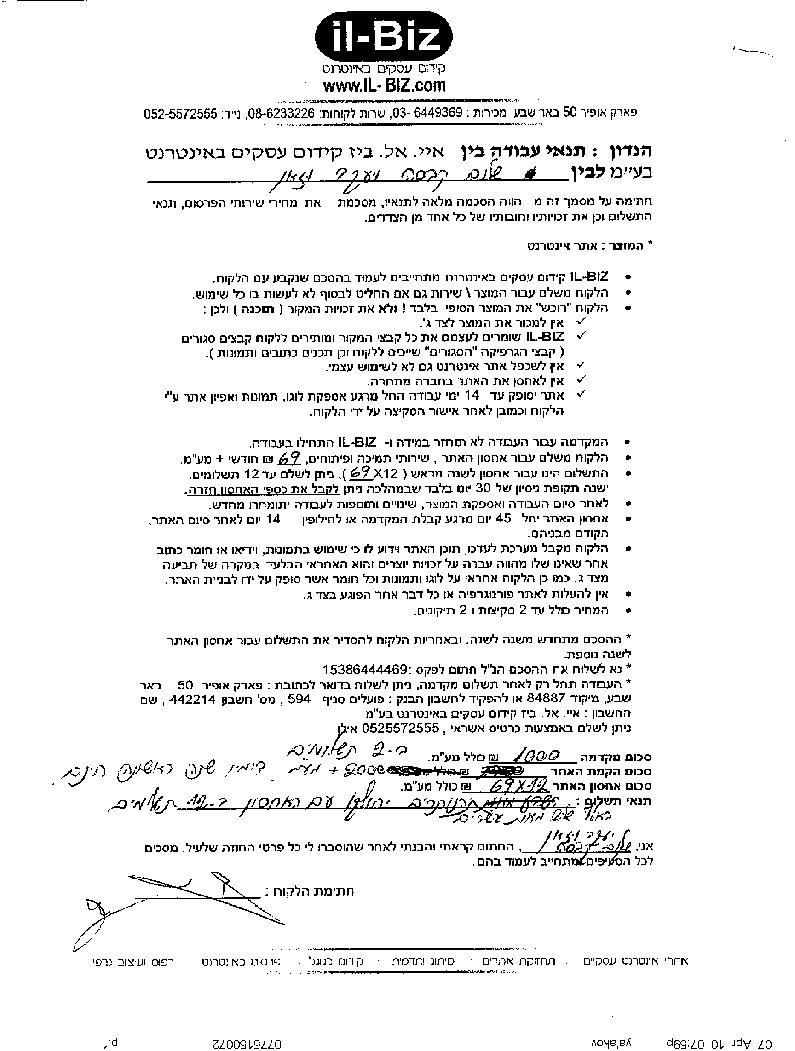 il-Biz
קידום עסקים באינטרנט
www.IL-BIZ.com
פארק אופיר 50 באר שבע. מכירות : 03-6449369, שרות לקוחות: 08-6233226, נייד: 052-5572555
הנדון : תנאי עבודה בין איי. אל. ביז קידום עסקים באינטרנט
בע״מ לבין
חתימה על מסמך זה מ הווה הסכמה מלאה לתנאיו, מסכמת את מחירי שירותי הפרסום, ותנאי
התשלום וכן את זכויותיו וחובותיו של כל אחד מן הצדדים.
* המוצר : אתר אינטרנט
• IL-BIZ קידום עסקים באינטרנט מתחייבים לעמוד בהסכם שנקבע עם הלקוח.
• הלקוח משלם עבור המוצר \ שירות גם אם החליט לבסוף לא לעשות בו כל שימוש.
• הלקוח "רוכש" את המוצר הסופי בלבד ! ולא את זכויות המקור ( תוכנה ) ולכן :
✓ אין למכור את המוצר לצד ג'.
✓ IL-BIZ שומרים לעצמם את כל קבצי המקור ומותירים ללקוח קבצים סגורים
( קבצי הגרפיקה "הסגורים" שייכים ללקוח וכן תכנים כתובים ותמונות ).
✓ אין לשכפל אתר אינטרנט גם לא לשימוש עצמי.
✓ אין לאחסן את האתר בחברה מתחרה.
✓ אתר יסופק עד 14 ימי עבודה החל מרגע אספקת לוגו, תמונות ואפיון אתר ע"י
הלקוח וכמובן לאחר אישור הסקיצה על ידי הלקוח.
• המקדמה עבור העבודה לא תוחזר במידה ו- IL-BIZ התחילו בעבודה.
• הלקוח משלם עבור אחסון האתר , שירותי תמיכה ופיתוחים, 69 ₪ חודשי + מע"מ.
• התשלום הינו עבור אחסון לשנה מראש ( 69X12 ), ניתן לשלם עד 12 תשלומים.
ישנה תקופת ניסיון של 30 יום בלבד שבמהלכה ניתן לקבל את כספי האחסון חזרה.
• לאחר סיום העבודה ואספקת המוצר, שינויים ותוספות לעבודה יתומחרו מחדש.
• אחסון האתר יחל 45 יום מרגע קבלת המקדמה או לחילופין 14 יום לאחר סיום האתר,
הקודם מבניהם.
• הלקוח מקבל מערכת לעדכון תוכן האתר וידוע לו כי שימוש בתמונות, וידיאו או חומר כתוב
אחר שאינו שלו מהווה עברה על זכויות יוצרים והוא האחראי הבלעדי במקרה של תביעה
מצד ג. כמו כן הלקוח אחראי על לוגו ותמונות וכל חומר אשר סופק על ידו לבניית האתר.
• אין להעלות לאתר פורנוגרפיה או כל דבר אחר הפוגע בצד ג.
• המחיר כולל עד 2 סקיצות ו 2 תיקונים.
* ההסכם מתחדש משנה לשנה, ובאחריות הלקוח להסדיר את התשלום עבור אחסון האתר
לשנה נוספת.
* נא לשלוח את ההסכם הנ"ל חתום לפקס :15386444469
* העבודה תחל רק לאחר תשלום מקדמה, ניתן לשלוח בדואר לכתובת : פארק אופיר 50 באר
שבע, מיקוד 84887 או להפקיד לחשבון הבנק : פועלים סניף 594 , מס' חשבון 442214 , שם
החשבון : איי. אל. ביז קידום עסקים באינטרנט בע"מ
ניתן לשלם באמצעות כרטיס אשראי , 0525572555 אילן
סכום מקדמה 1000 ₪ כולל מע"מ. ב-2 תשלומים
סכום הקמת האתר 2000 + מע"מ
סכום אחסון האתר 69X12 ₪ כולל מע"מ.
תנאי תשלום : עם האחסון ב-12 תשלומים
אני, , החתום קראתי והבנתי לאחר שהוסברו לי כל פרטי החוזה שלעיל. מסכים
לכל הסעיפים ומתחייב לעמוד בהם.
חתימת הלקוח :
אתרי אינטרנט עסקיים · תחזוקת אתרים · מיתוג ותדמית · קידום בגוגל · פרסום באינטרנט · דפוס ועיצוב גרפי
07 Apr 10 07:59p ya'akov 0776150072 p.1